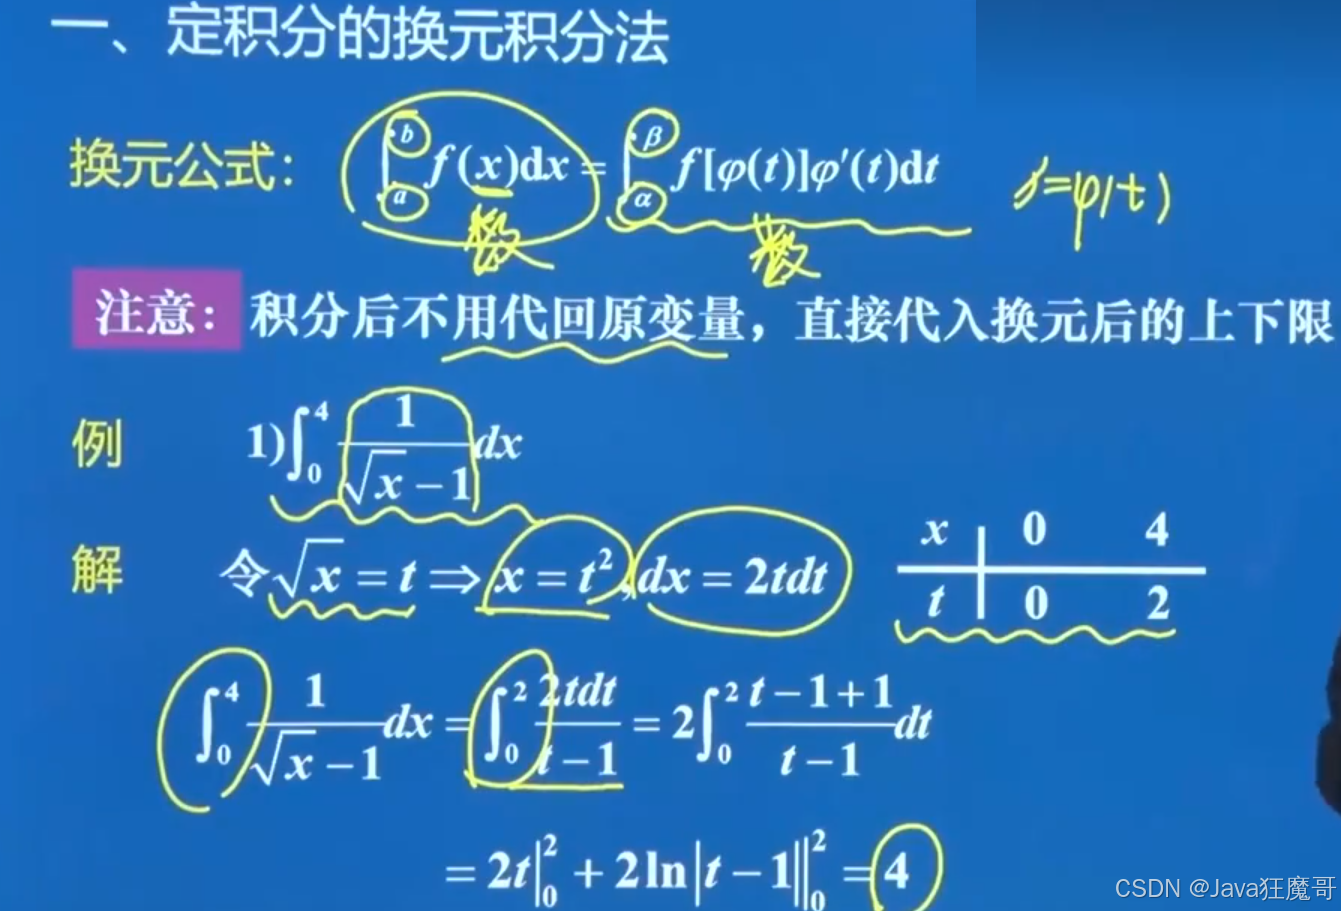 一、定积分的换元积分法
换元公式: ∫_a^b f(x)dx = ∫_α^β f[φ(t)]φ′(t)dt x=φ(t)
数 数
注意: 积分后不用代回原变量，直接代入换元后的上下限
例 1)∫_0^4 1/(√x−1) dx
解 令√x = t ⇒ x = t², dx = 2tdt
x 0 4
t 0 2
∫_0^4 1/(√x−1) dx = ∫_0^2 2tdt/(t−1) = 2∫_0^2 (t−1+1)/(t−1) dt
= 2t|_0^2 + 2ln|t−1||_0^2 = 4
CSDN @Java狂魔哥